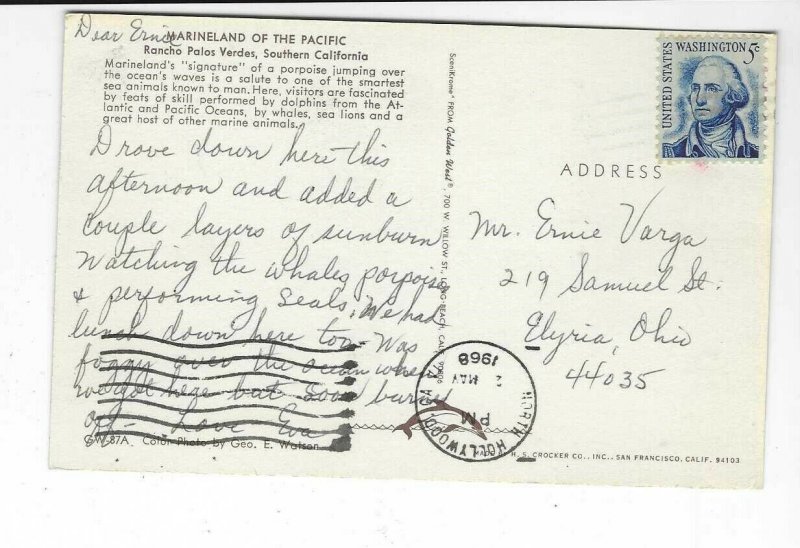 Dear Ernie
MARINELAND OF THE PACIFIC
Rancho Palos Verdes, Southern California
Marineland's "signature" of a porpoise jumping over
the ocean's waves is a salute to one of the smartest
sea animals known to man. Here, visitors are fascinated
by feats of skill performed by dolphins from the At-
lantic and Pacific Oceans, by whales, sea lions and a
great host of other marine animals.
Drove down here this
afternoon and added a
couple layers of sunburn
watching the whales porpoise
& performing seals. We had
lunch down here too - Was
foggy over the ocean when
we got here but soon burned
off - Love Eva
GW-87A. Color Photo by Geo. E. Watson
SceniKrome® FROM Golden West®, 700 W. WILLOW ST., LONG BEACH, CALIF. 90806
UNITED STATES
WASHINGTON 5c
ADDRESS
Mr. Ernie Varga
219 Samuel St.
Elyria, Ohio
44035
NORTH HOLLYWOOD
PM
2 MAY
1968
H. S. CROCKER CO., INC., SAN FRANCISCO, CALIF. 94103